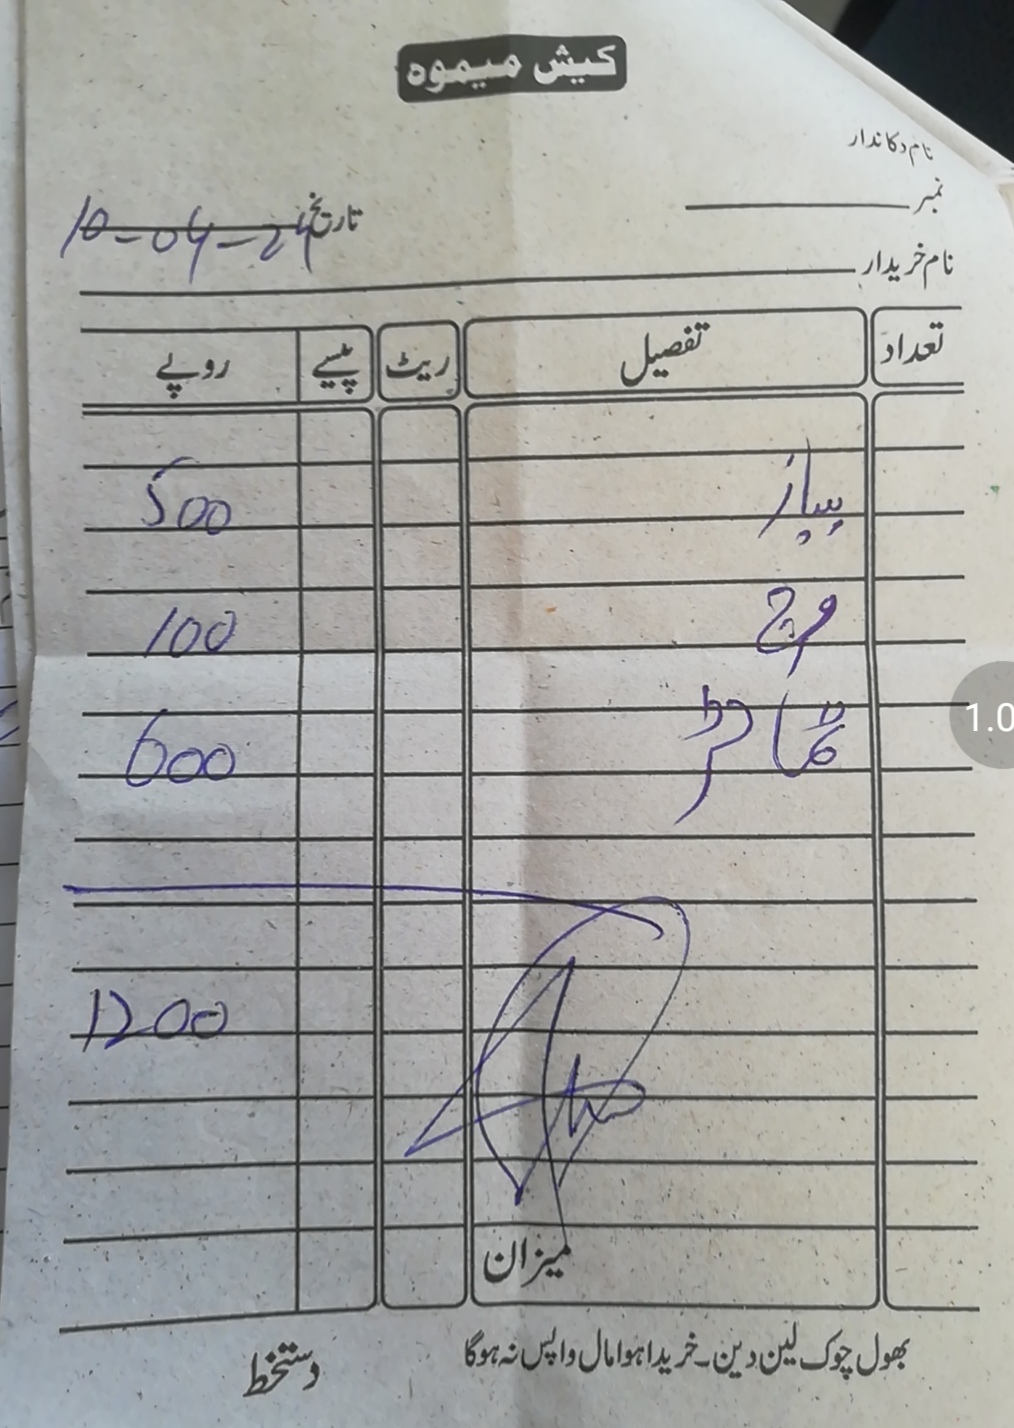 کیش میموہ
نام دکاندار
نمبر
تاریخ 10-04-24
نام خریدار
تعداد تفصیل ریٹ پیسے روپے
پیاز 500
مرچ 100
ٹماٹر 600
1200
میزان
بھول چوک لین دین۔ خریدا ہوا مال واپس نہ ہوگا
دستخط
1.0